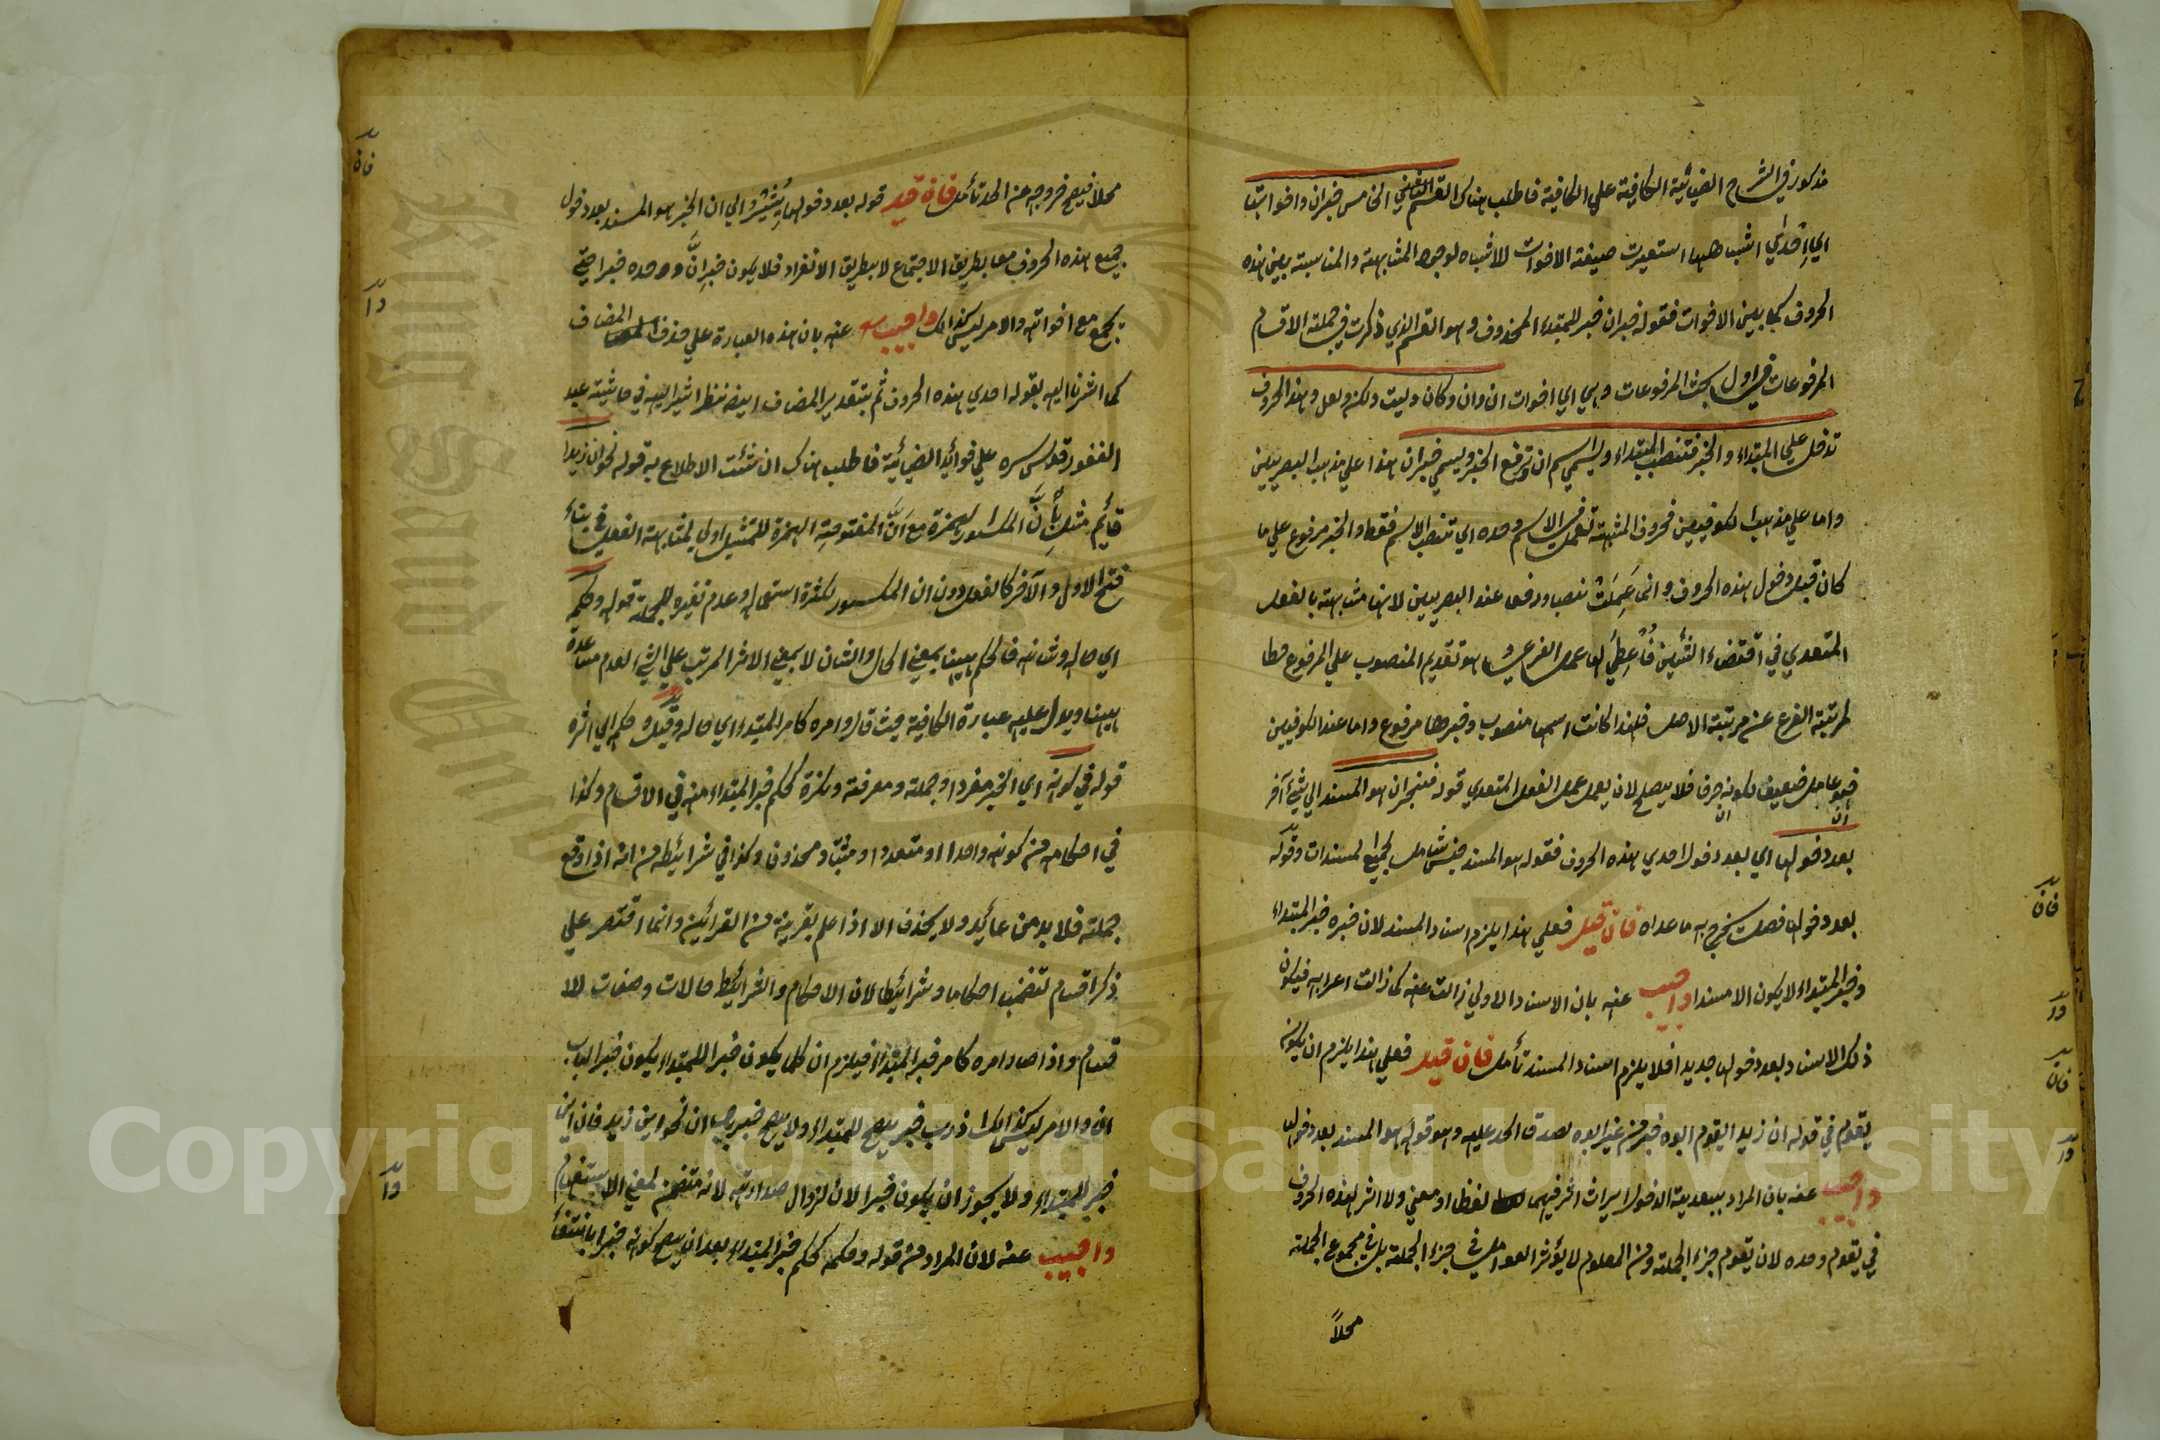 مذكور في الشراح الضيائية الكافية علي الكافية فاطلب هناك القسم الخامس خبر ان واخواتها
اي احدي اشباهها استعيرت صيغة الاخوات للاشباه لوجود المشابهة والمناسبة بين هذه
الحروف كما بين الاخوات فقوله خبر ان خبر للمبتداء المحذوف وهو القسم الذي ذكرت في جملة الاقسام
المرفوعات في اول بحث المرفوعات وهي اي اخوات ان وان وكان وليت ولكن ولعل وهذه الحروف
تدخل علي المبتداء والخبر فتنصب المبتداء ويسمي اسم ان وترفع الخبر ويسمي خبر ان هذا علي مذهب البصريين
واما علي مذهب الكوفيين فحروف المشبهة تعمل في الاسم وحده اي تنصب الاسم فقط والخبر مرفوع علي ما
كان قبل دخول هذه الحروف وانما عملت نصب ورفعا عند البصريين لانها مشابهة بالفعل
المتعدي في اقتضاء الشئين فاعطي لها عمل الفرعي وهو تقديم المنصوب علي المرفوع حطا
لمرتبة الفرع عن مرتبة الاصل فلهذا كانت اسمها منصوب وخبرها مرفوع واما عند الكوفيين
فهو عامل ضعيف لكونه حرف فلا يصلح لان يعمل عمل الفعل المتعدي قوله فخبر ان هو المسند الي شيء آخر
بعد دخولها اي بعد دخول احدي هذه الحروف فقوله هو المسند جنس شامل لجميع المسندات وقوله
بعد دخولها فصل يخرج به ما عداه فان قيل فعلي هذا يلزم اسناد المسند لان خبره خبر المبتداء
وخبر المبتداء لا يكون الا مسندا واجيب عنه بان الاسناد الاولي زالت عنه كما زالت اعرابه فيكون
ذلك الاسناد بعد دخولها جديدا فلا يلزم اسناد المسند تأمل فان قيل فعلي هذا يلزم ان يكون
يقوم في قوله ان زيدا يقوم ابوه خبر من غير ابوه لصدق الحد عليه وهو قوله هو المسند بعد دخولها
واجيب عنه بان المراد ببعدية الدخول ايراث اثر فيهما لفظا او معني ولا اثر لهذه الحروف
في يقوم وحده لان يقوم جزء الجملة ومن المعلوم لا يؤثر العوامل في جزء الجملة بل في مجموع الجملة
محلاً
محلا فيصح خروجه عن الحد تأمل فان قيل قوله بعد دخولها يشير الي ان الخبر هو المسند بعد دخول
جميع هذه الحروف معا بطريق الاجتماع لا بطريق الانفراد فلا يكون خبر ان وحده خبرا حتي
يجمع مع اخواته والامر ليس كذلك واجيب عنه بان هذه العبارة علي حذف المضاف
كما اشرنا اليه بقوله احدي هذه الحروف ثم بتقدير المضاف ايضا نظر اشير اليه في حاشية عبد
الغفور قدس سره علي فوائد الضيائية فاطلب هناك ان شئت الاطلاع به قوله نحو ان زيدا
قائم مثل بأن المكسور الهمزة مع أن المفتوحة الهمزة للتمثيل اولي لمشابهة الفعل في بناء
فتح الاول والآخر كالفعل دون ان المكسور لكثرة استعماله وعدم تغيره للجملة قوله وحكمه
اي حاله وشانه فالحكم ههنا بمعني الحال والشان لا بمعني الاثر المرتب علي الشئ لعدم مساعدة
ههنا ويدل عليه عبارة الكافية حيث قال وامره كامر المبتداء اي حاله وقيل وحكم اي اثره
قوله في كونه اي الخبر مفردا وجملة ومعرفة ونكرة كحكم خبر المبتداء منه في الاقسام وكذا
في احكامه من كونه واحدا او متعددا او مثبتا ومحذوف وكذا في شرائطه من انه اذا وقع
جملة فلا بد من عائد ولا يحذف الا اذا علم بقرينة من القرائين وانما اقتصر علي
ذكر اقسام لتضمن احكاما وشرائطا لان الاحكام والشرائط حالات وصفات للا
قسام واذا صار امره كامر خبر المبتداء فيلزم ان كلما يكون خبرا للمبتداء يكون خبرا لباب
ان والامر ليس كذلك اذ رب خبر يصح للمبتداء ولا يصح خبر باب ان نحو اين زيد فان اين
خبر للمبتداء ولا يجوز ان يكون خبرا لان لزوال صدارته لانه متضمن لمعني الاستفهام
واجيب عنه لان المراد من قوله وحكمه كحكم خبر المبتداء بعد ان يصح كونه خبرا بانتفاء